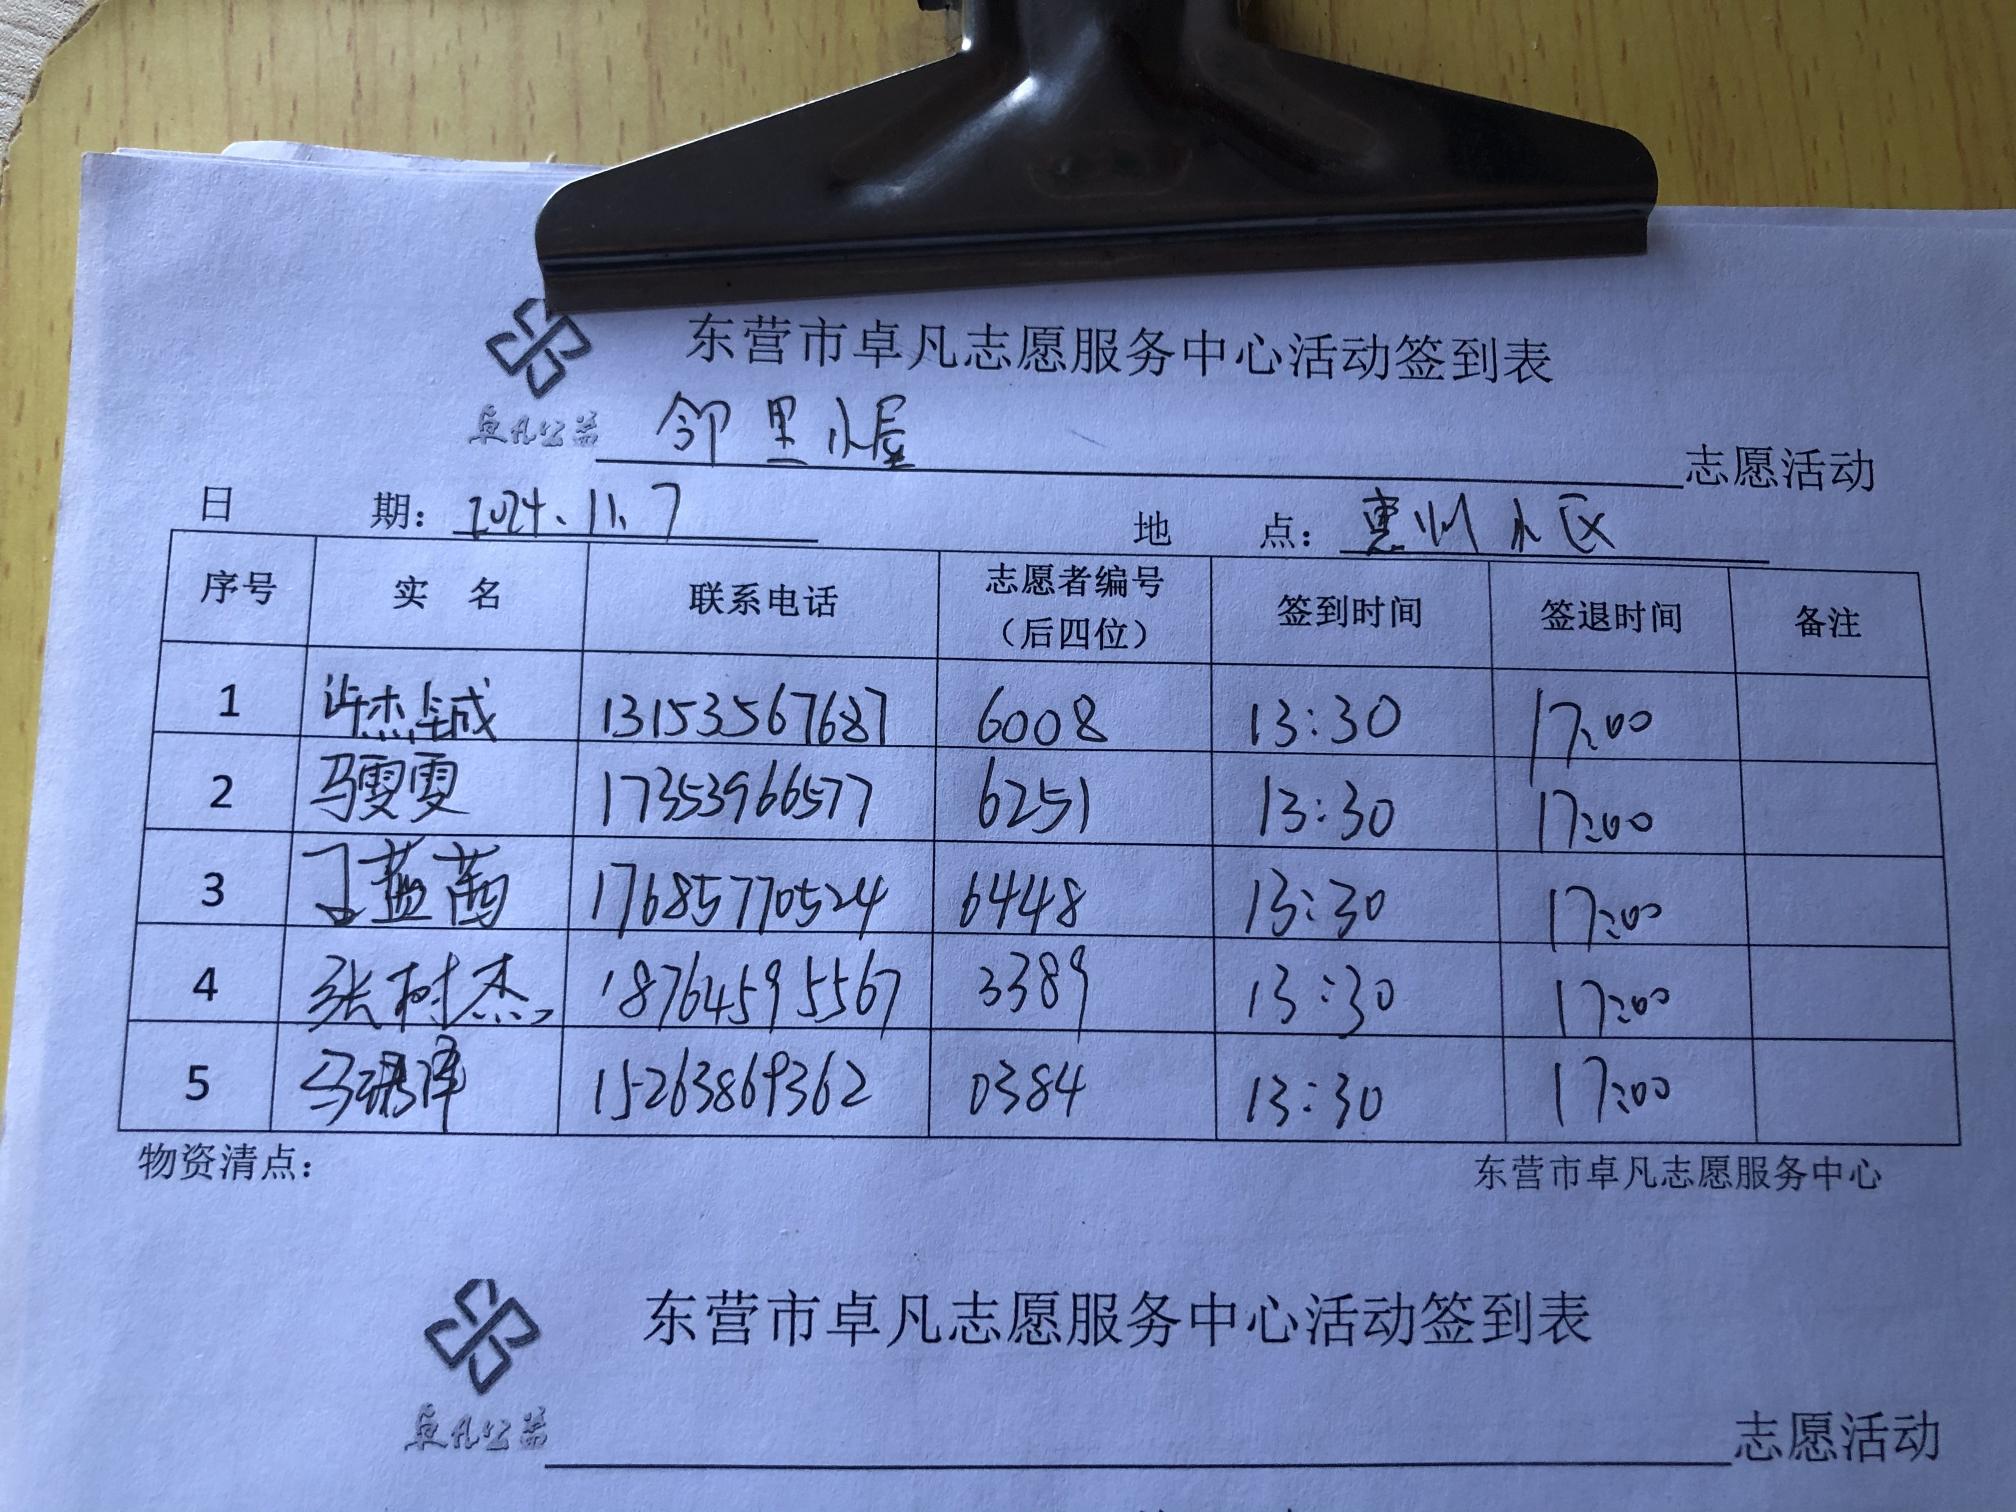 东营市卓凡志愿服务中心活动签到表
卓凡公益 邻里小屋 志愿活动
日期：2024.11.7 地点：惠州小区
序号 实名 联系电话 志愿者编号（后四位） 签到时间 签退时间 备注
1 许杰诚 13153567687 6008 13:30 17:00
2 马雯雯 17353966577 6251 13:30 17:00
3 丁蓝茜 17685770524 6448 13:30 17:00
4 张树杰 18764595567 3389 13:30 17:00
5 马 泽 15263869362 0384 13:30 17:00
物资清点： 东营市卓凡志愿服务中心
东营市卓凡志愿服务中心活动签到表
卓凡公益 志愿活动